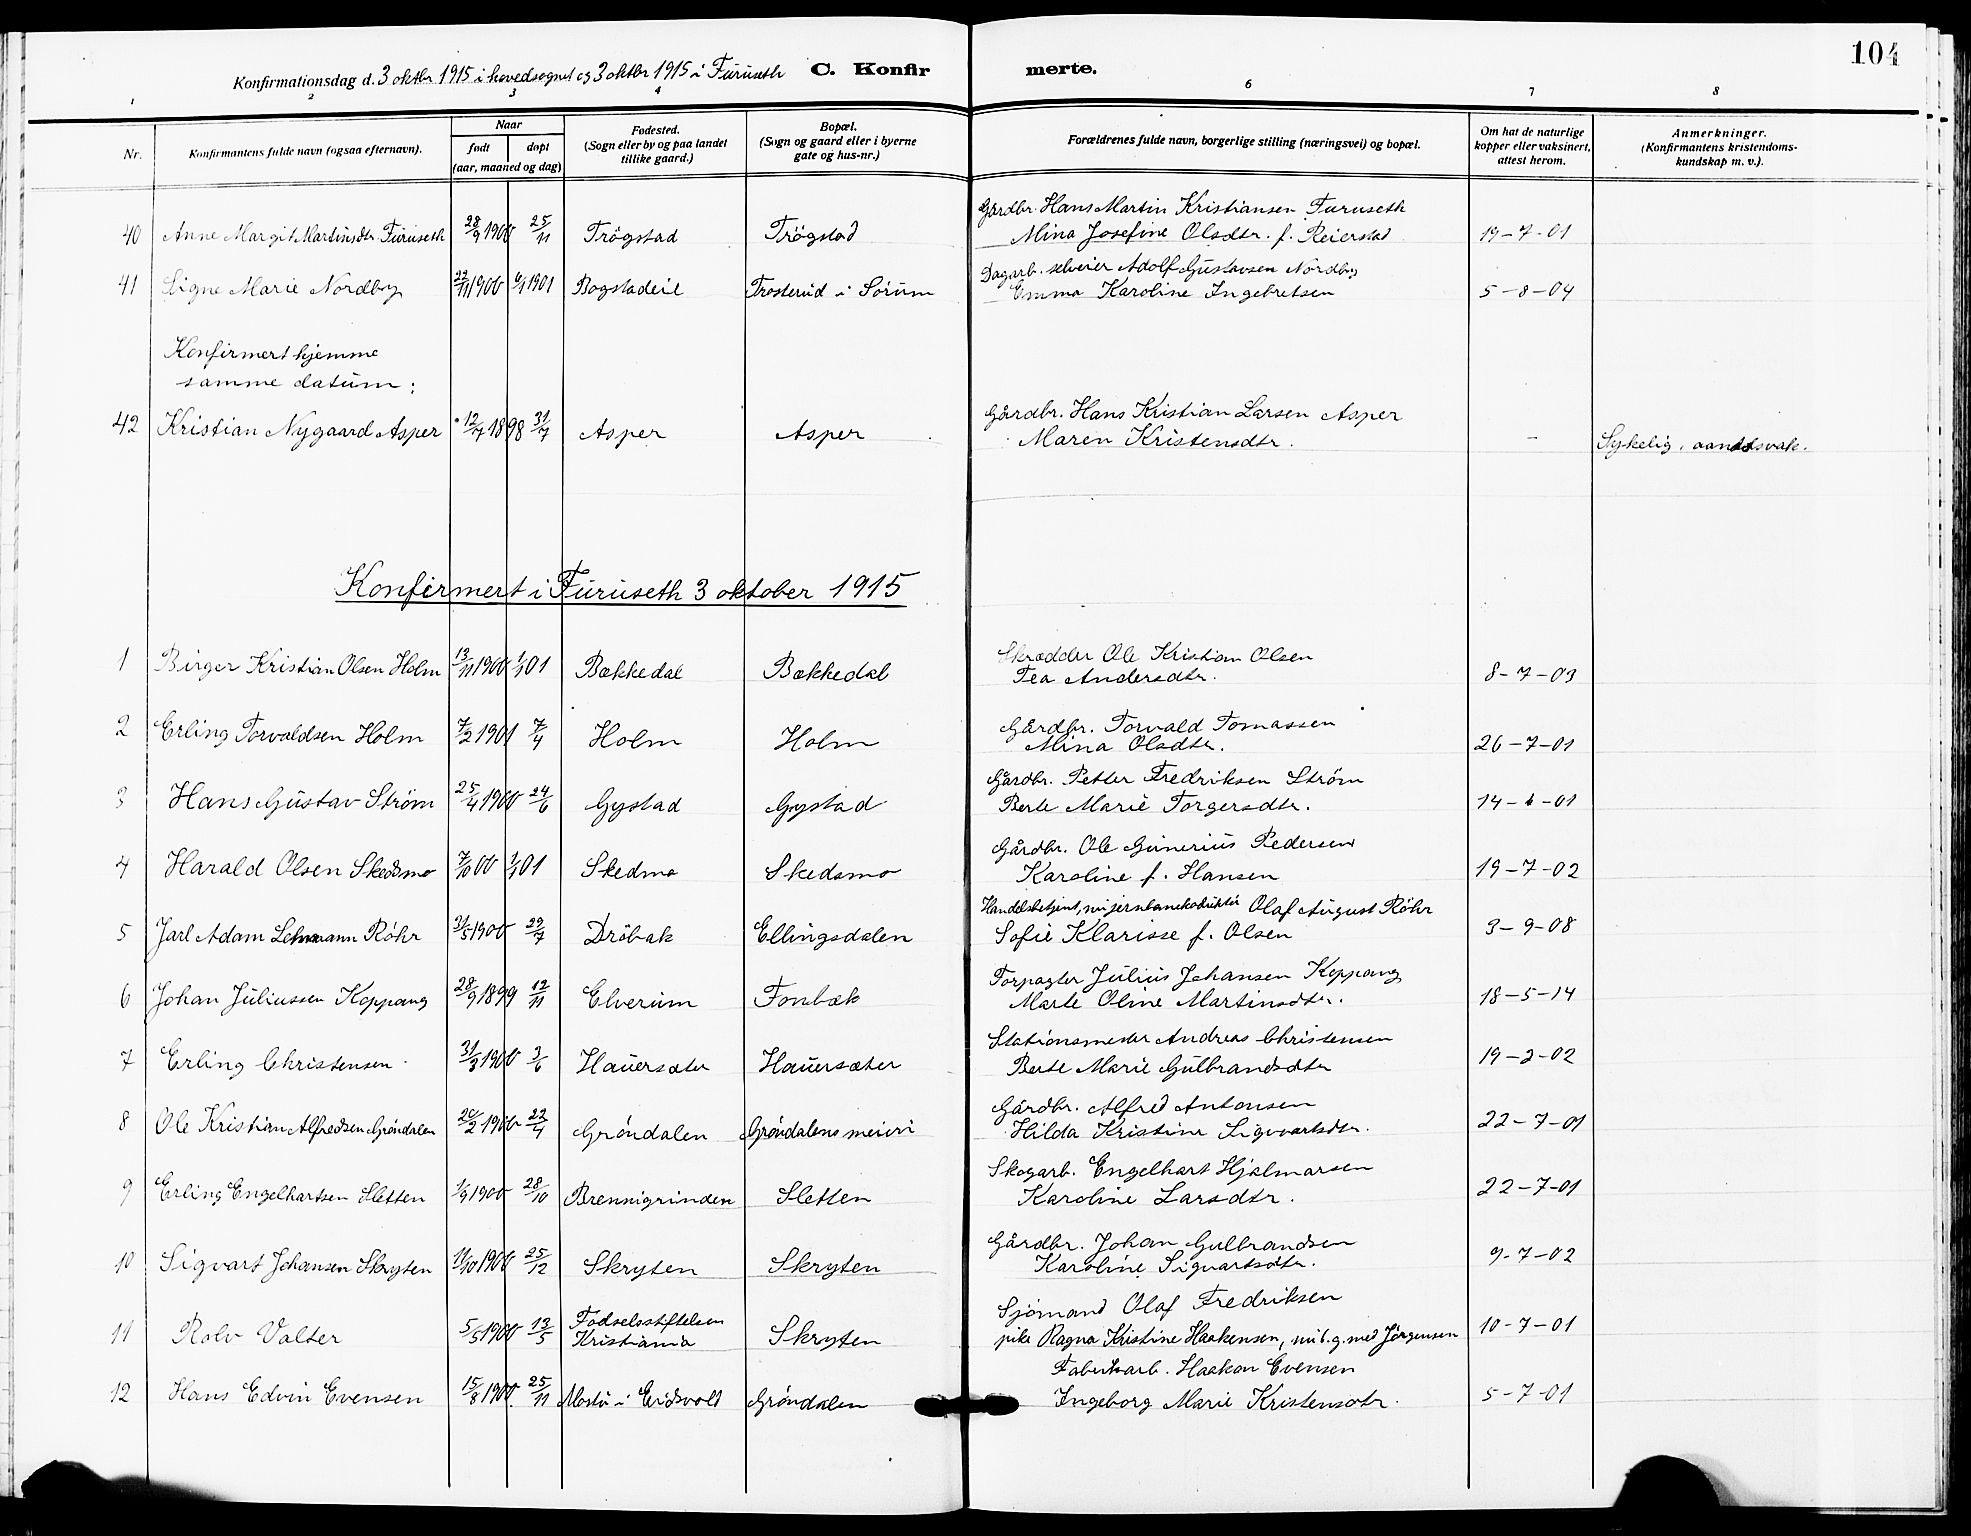 104
Konfirmationsdag d. 3 oktbr 1915 i hovedsognet og 3 oktbr 1915 i Furuseth C. Konfirmerte.
1 2 3 4 6 7 8
Nr. Konfirmantens fulde navn (ogsaa efternavn). Naar født døpt (aar, maaned og dag) Fødested. (Sogn eller by og paa landet tillike gaard.) Bopæl. (Sogn og gaard eller i byerne gate og hus-nr.) Forældrenes fulde navn, borgerlige stilling (næringsvei) og bopæl. Om hat de naturlige kopper eller vaksinert, attest herom. Anmerkninger. (Konfirmantens kristendomskundskap m. v.).
Gårdbr. Hans Martin Kristiansen Furuseth
40 Anne Margit Martinsdtr. Furuseth 28/9 1900 25/11 Trögstad Trögstad Mina Josefine Olsdtr. f. Reierstad 19-7-01
Dagarb. selveier Adolf Gustavsen Nordby
41 Signe Marie Nordby 22/11 1900 6/1 1901 Bogstadeie Trosterud i Sørum Emma Karoline Ingebretsen 5-8-04
Konfirmert hjemme
samme datum:
Gårdbr. Hans Kristian Larsen Asper
42 Kristian Nygaard Asper 12/7 1898 31/7 Asper Asper Maren Kristensdtr. - Sykelig, aandssvak.
Konfirmert i Furuseth 3 oktober 1915
Skrædder Ole Kristian Olsen
1 Birger Kristian Olsen Holm 13/11 1900 1/1 01 Bækkedal Bækkedal Tea Andersdtr. 8-7-03
Gårdbr. Torvald Tomassen
2 Erling Torvaldsen Holm 7/2 1901 7/4 Holm Holm Mina Olsdtr. 26-7-01
Gårdbr. Petter Fredriksen Ström
3 Hans Gustav Ström 25/4 1900 24/6 Gystad Gystad Berte Marie Torgersdtr. 14-6-01
Gårdbr. Ole Gunerius Pedersen
4 Harald Olsen Skedsmo 7/10 00 1/1 01 Skedmo Skedsmo Karoline f. Hansen 19-7-02
Handelsbetjent, nu jernbanekonduktör Olaf August Röhr
5 Jarl Adam Lehmann Röhr 31/5 1900 29/7 Dröbak Ellingsdalen Sofie Klarisse f. Olsen 3-9-08
Forpagter Julius Johansen Koppang
6 Johan Juliussen Koppang 28/9 1899 12/11 Elverum Fonbæk Marte Oline Martinsdtr. 18-5-14
Stationsmester Andreas Christensen
7 Erling Christensen 31/3 1900 3/6 Hauersæter Hauersæter Berte Marie Gulbrandsdtr 19-2-02
Gårdbr. Alfred Antonsen
8 Ole Kristian Alfredsen Gröndalen 20/2 1900 22/4 Gröndalen Gröndalens meieri Hilda Kristine Sigvartsdtr. 22-7-01
Skogarb. Engelhart Hjalmarsen
9 Erling Engelhartsen Sletten 1/9 1900 28/10 Brennigrinden Sletten Karoline Larsdtr. 22-7-01
Gårdbr. Johan Gulbrandsen
10 Sigvart Johansen Skryten 11/10 1900 25/12 Skryten Skryten Karoline Sigvartsdtr. 9-7-02
Fodselsstiftelsen Sjömand Olaf Fredriksen
11 Rolv Valter 5/5 1900 13/5 Kristiania Skryten pike Ragna Kristine Haakensen, nu b.g. med Jörgensen 10-7-01
Fabrikarb. Haakon Evensen
12 Hans Edvin Evensen 15/8 1900 25/11 Mostu i Eidsvold Gröndalen Ingeborg Marie Kristensdtr. 5-7-01